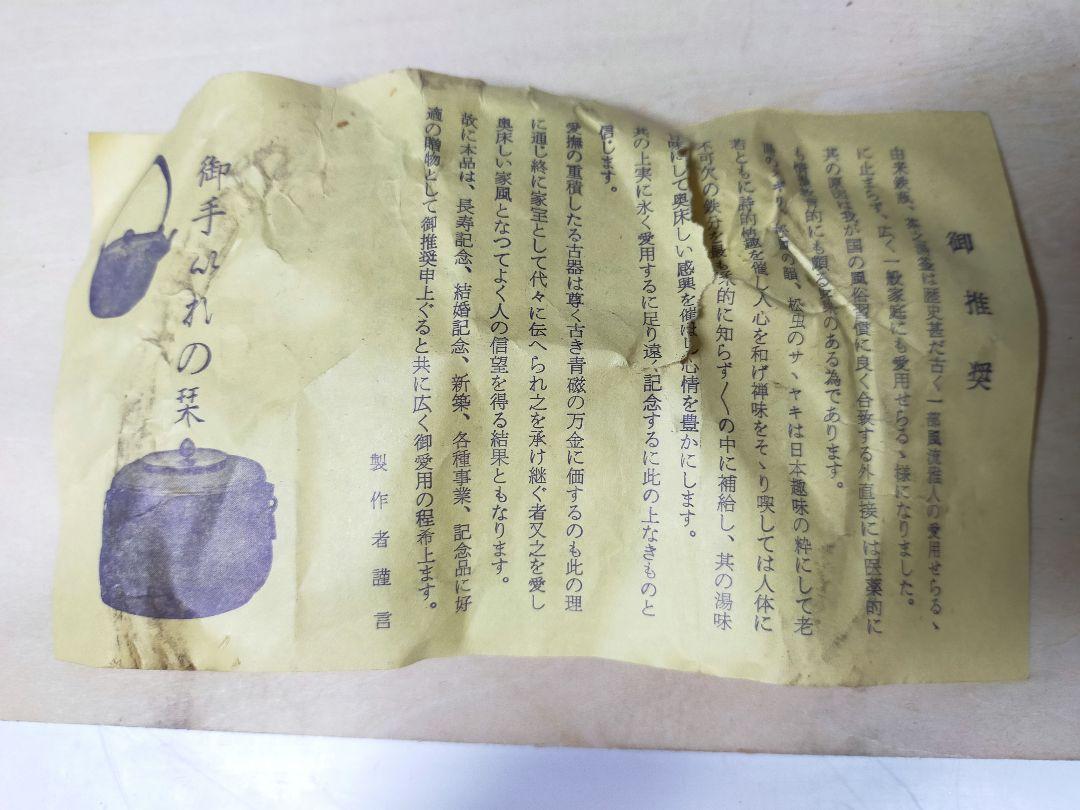 御推奨
由来鉄瓶、茶之湯釜は歴史甚だ古く一部風流雅人の愛用せらるゝ
に止まらず、広く一般家庭にも愛用せらるゝ様になりました。
其の原因は我が国の風俗習慣に良く合致する外直接には医薬的に
も情 的にも頗る  のある為であります。
湯のタギリ、松風の韻、松虫のサヽヤキは日本趣味の粋にして老
若ともに詩的情趣を催し人心を和げ禅味をそゝり喫しては人体に
不可欠の鉄分を最も 的に知らず〱の中に補給し、其の湯味
にして奥床しい感興を催し心情を豊かにします。
其の上実に永く愛用するに足り遠く記念するに此の上なきものと
信じます。
愛撫の重積したる古器は尊く古き青磁の万金に価するのも此の理
に通じ終に家宝として代々に伝へられ之を承け継ぐ者又之を愛し
奥床しい家風となつてよく人の信望を得る結果ともなります。
故に本品は、長寿記念、結婚記念、新築、各種事業、記念品に好
適の贈物として御推奨申上ぐると共に広く御愛用の程希上ます。
製作者謹言
御手いれの栞